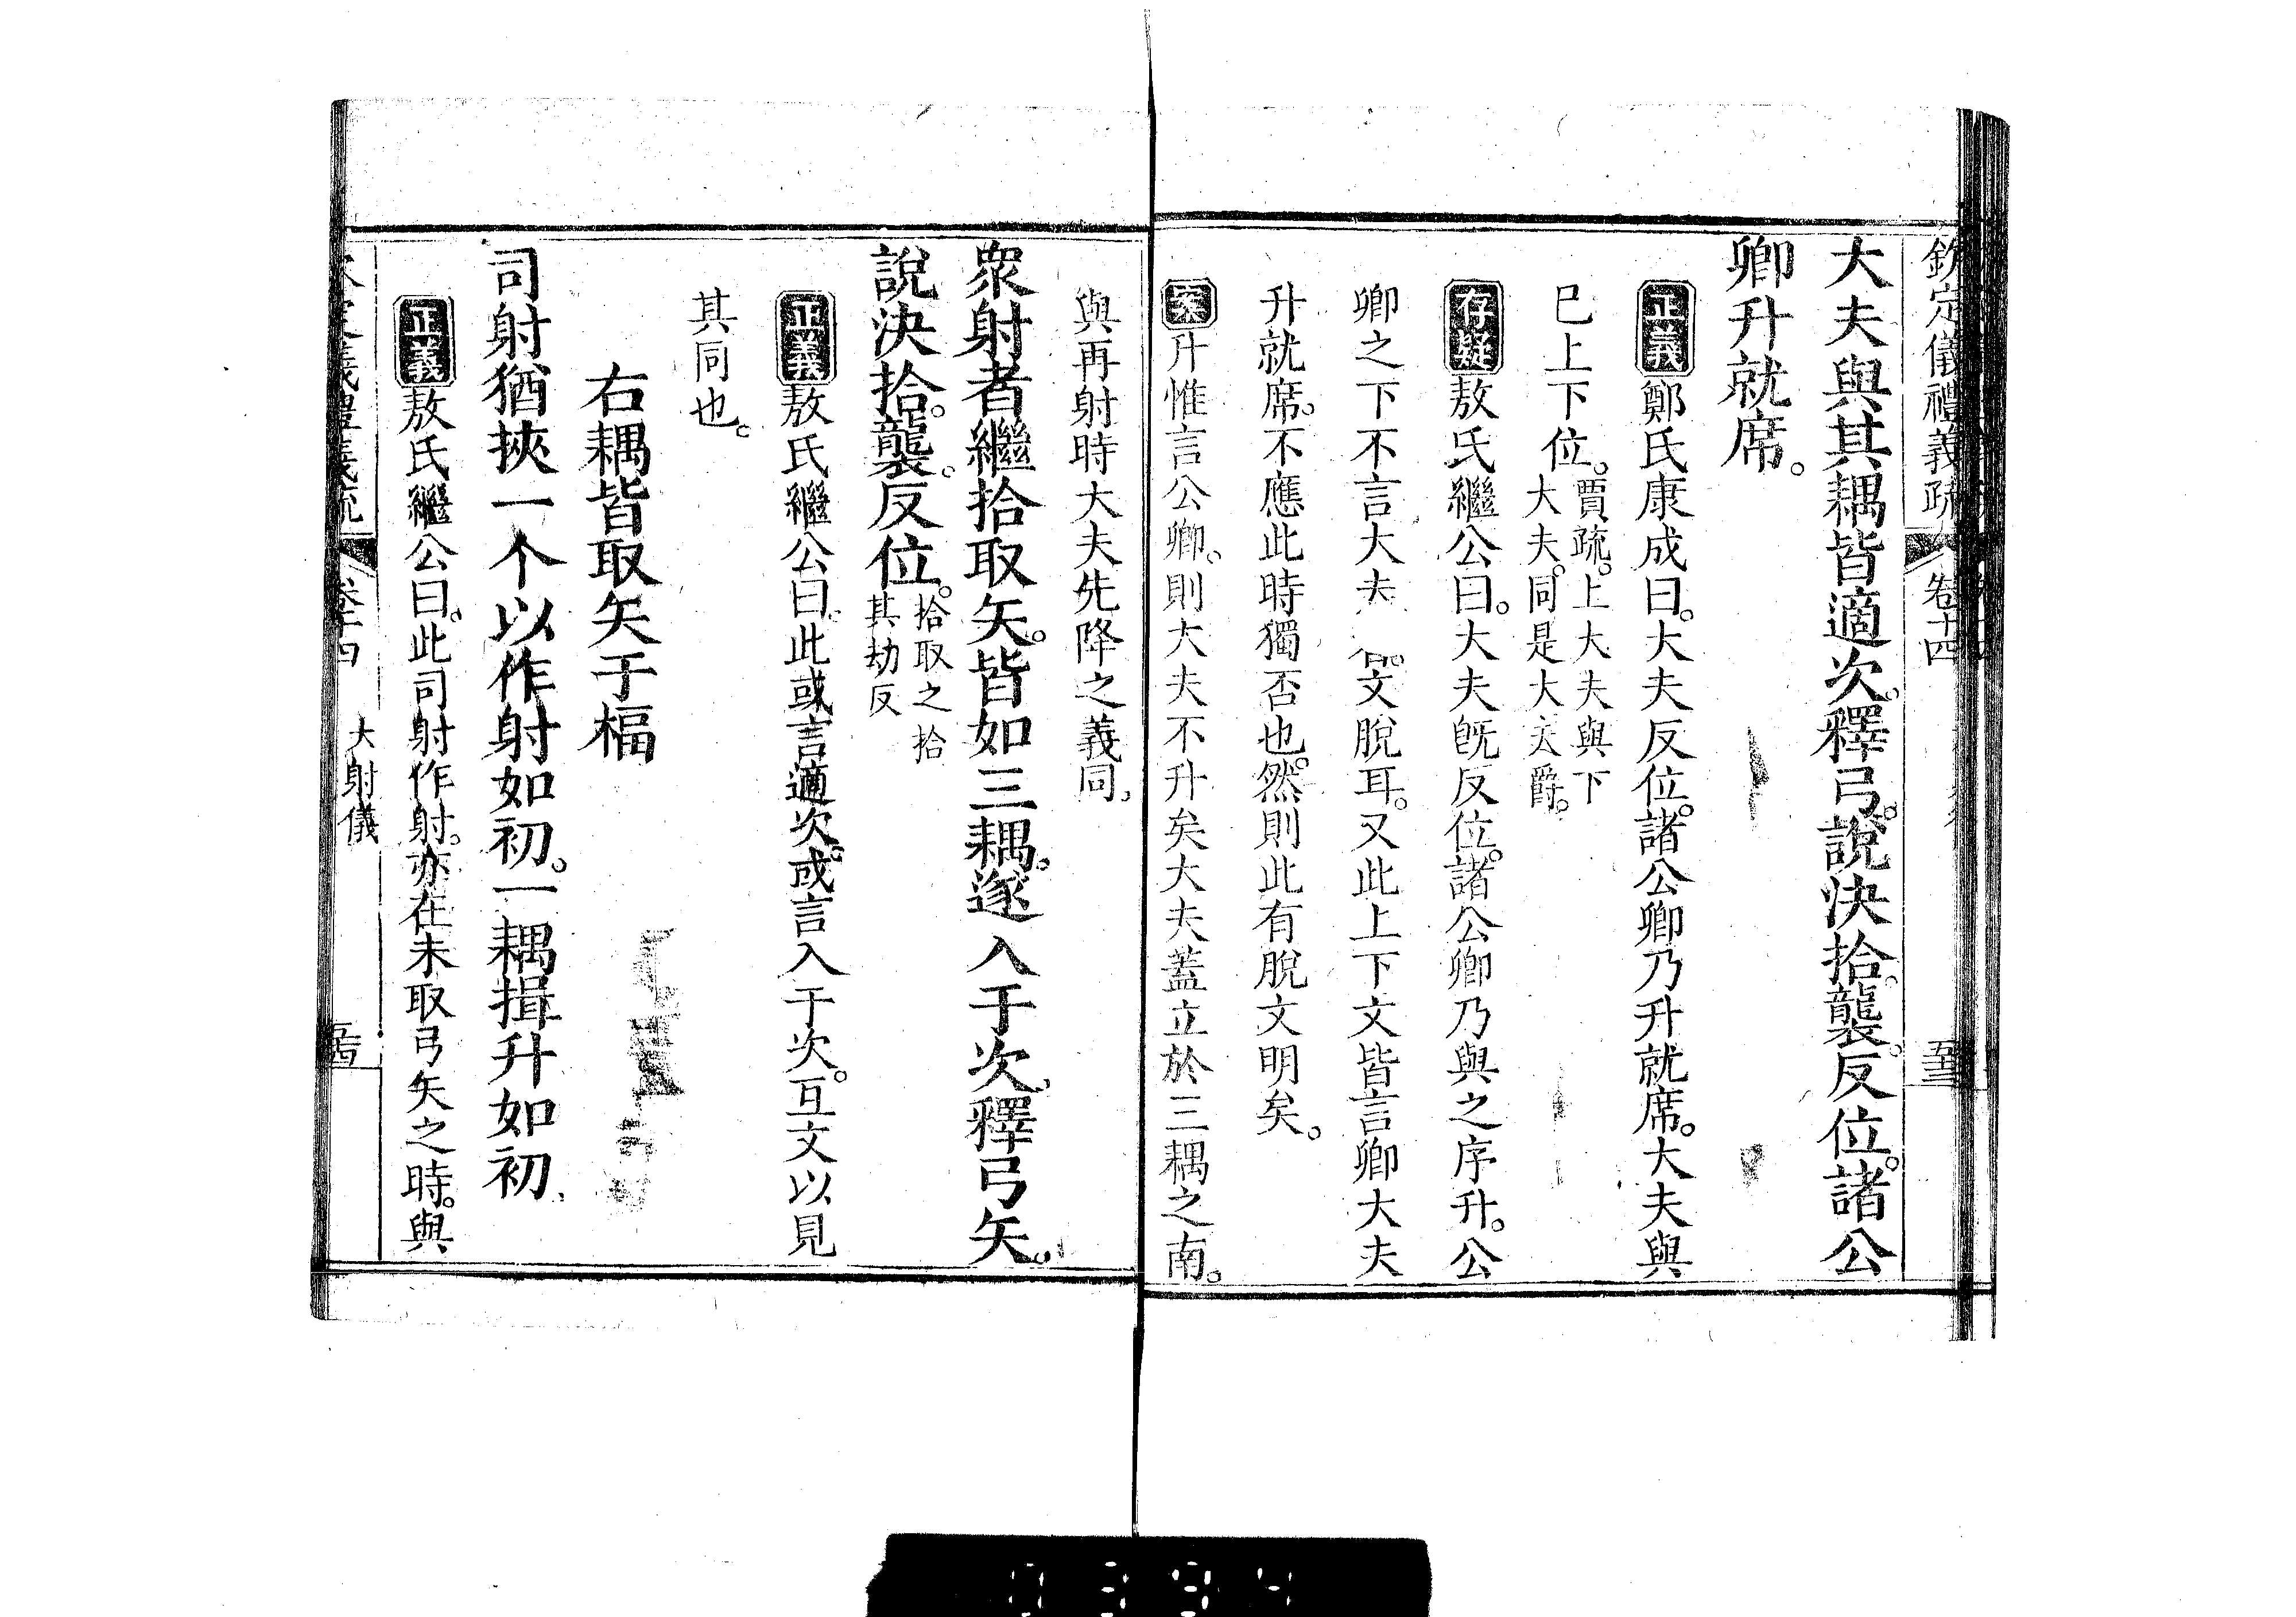 欽定儀禮義疏 卷十四 五十三
大夫與其耦皆適次。釋弓。說決拾。襲。反位。諸公
卿升就席。
正義鄭氏康成曰。大夫反位。諸公卿乃升就席。大夫與
已上下位。賈疏。上大夫與下
大夫。同是大夫爵。
存疑敖氏繼公曰。大夫旣反位。諸公卿乃與之序升。公
卿之下不言大夫 文脫耳。又此上下文皆言卿大夫
升就席。不應此時獨否也。然則此有脫文明矣。
案升惟言公卿。則大夫不升矣大夫蓋立於三耦之南。
與再射時大夫先降之義同。
衆射者繼拾取矢。皆如三耦。遂入于次。釋弓矢。
說決拾。襲。反位。拾取之拾
其劫反
正義敖氏繼公曰。此或言適次。或言入于次。互文以見
其同也。
右耦皆取矢于楅
司射猶挾一个以作射如初。一耦揖升如初。
正義敖氏繼公曰。此司射作射。亦在未取弓矢之時。與
義疏 卷十四 大射儀